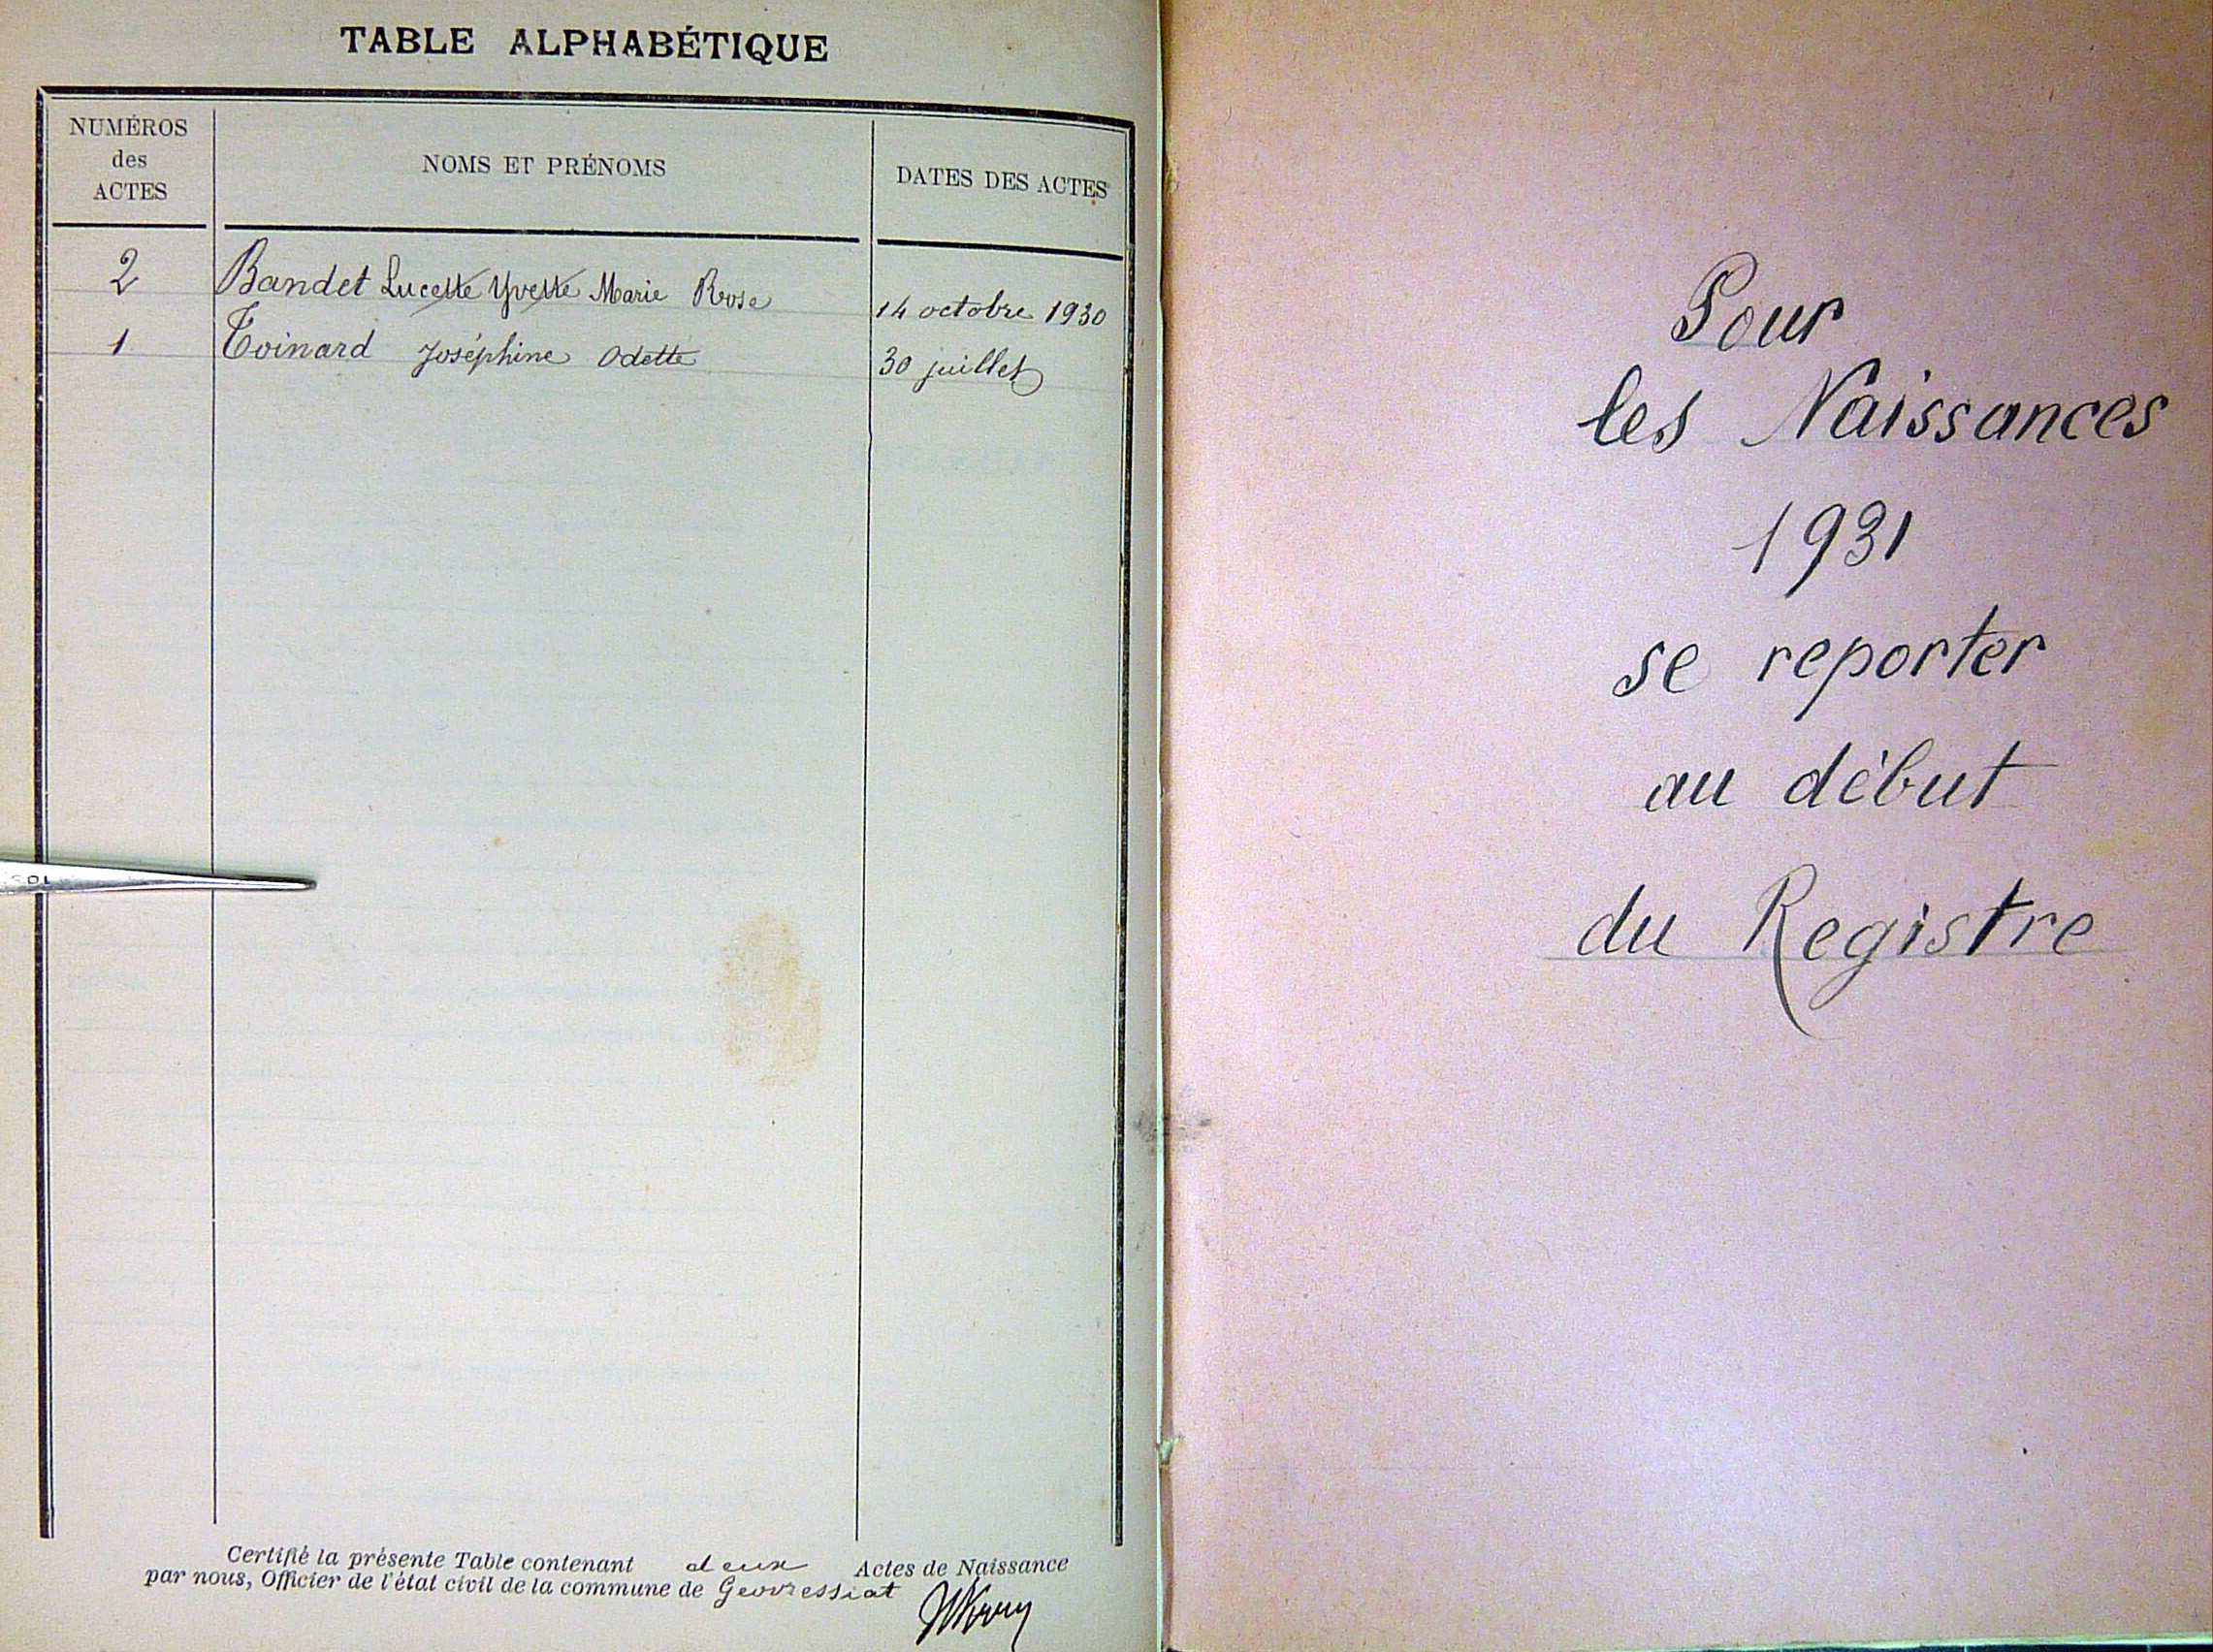 TABLE ALPHABÉTIQUE
NUMÉROS
des
ACTES
NOMS ET PRÉNOMS
DATES DES ACTES
2 Bandet Lucette Yvette Marie Rose 14 octobre 1930
1 Toinard Joséphine Odette 30 juillet
Certifié la présente Table contenant deux Actes de Naissance
par nous, Officier de l'état civil de la commune de Geovressiat
Pour
les Naissances
1931
se reporter
au début
du Registre